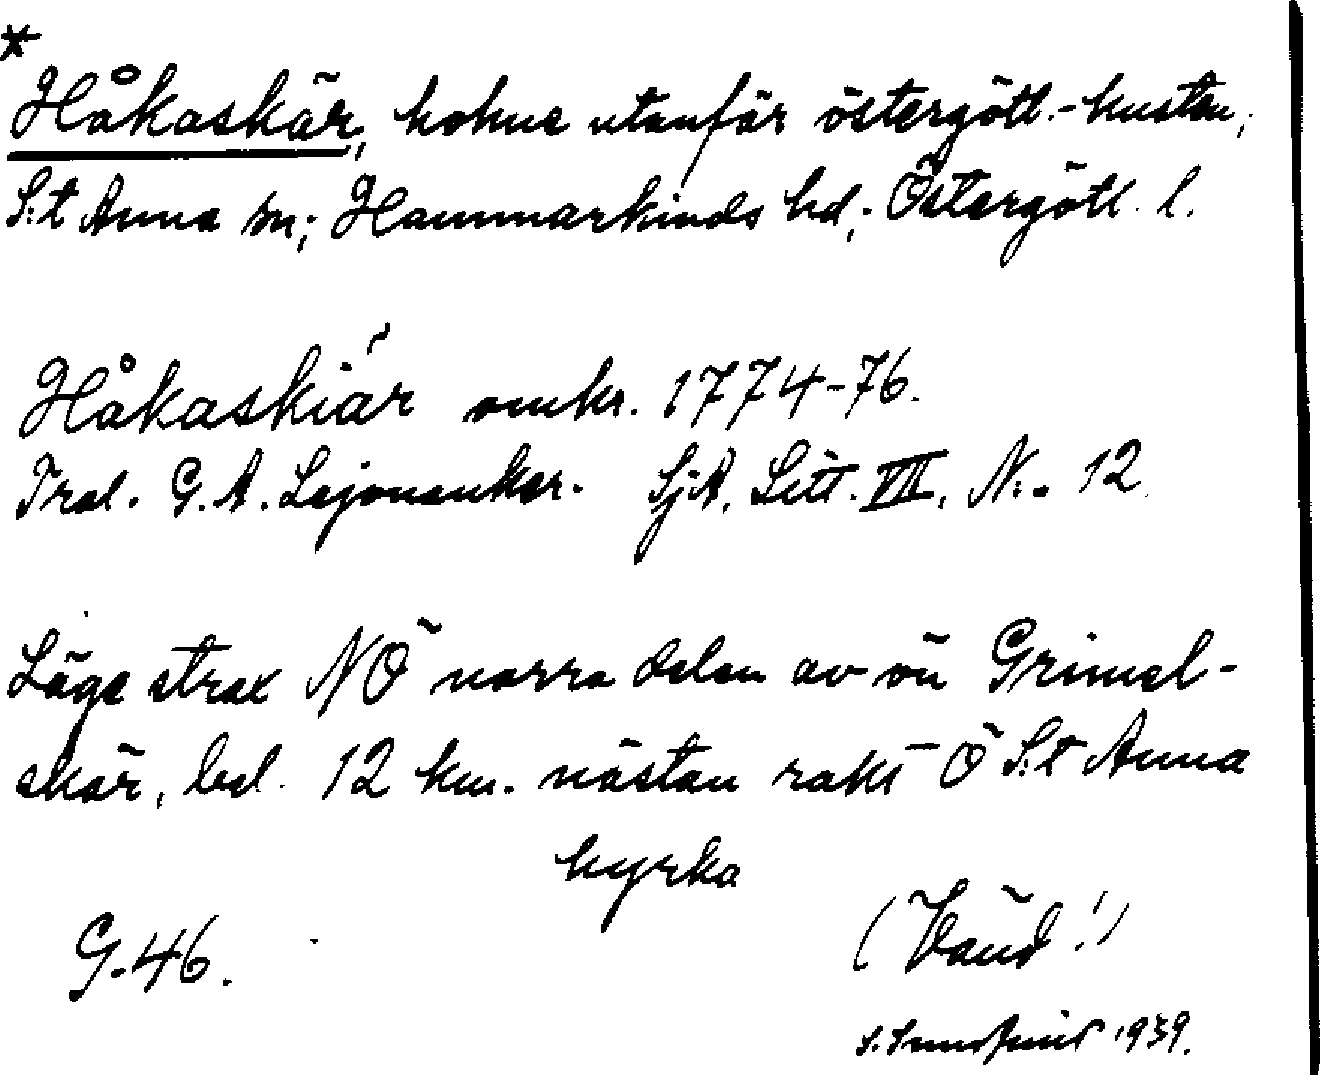 *
Håkaskär, holme utanför östergötl.-kusten,
S:t Anna sn; Hammarkinds hd, Östergötl. l.
Håkaskiär omkr. 1774-76.
Trol. G. A. Lejonanker. SjA, Litt. VII, N:o 12
Läge strax NÖ norra delen av ön Grimel-
skär, bel. 12 km. nästan rakt Ö S:t Anna
kyrka
(Vänd!)
G.46.
1939.